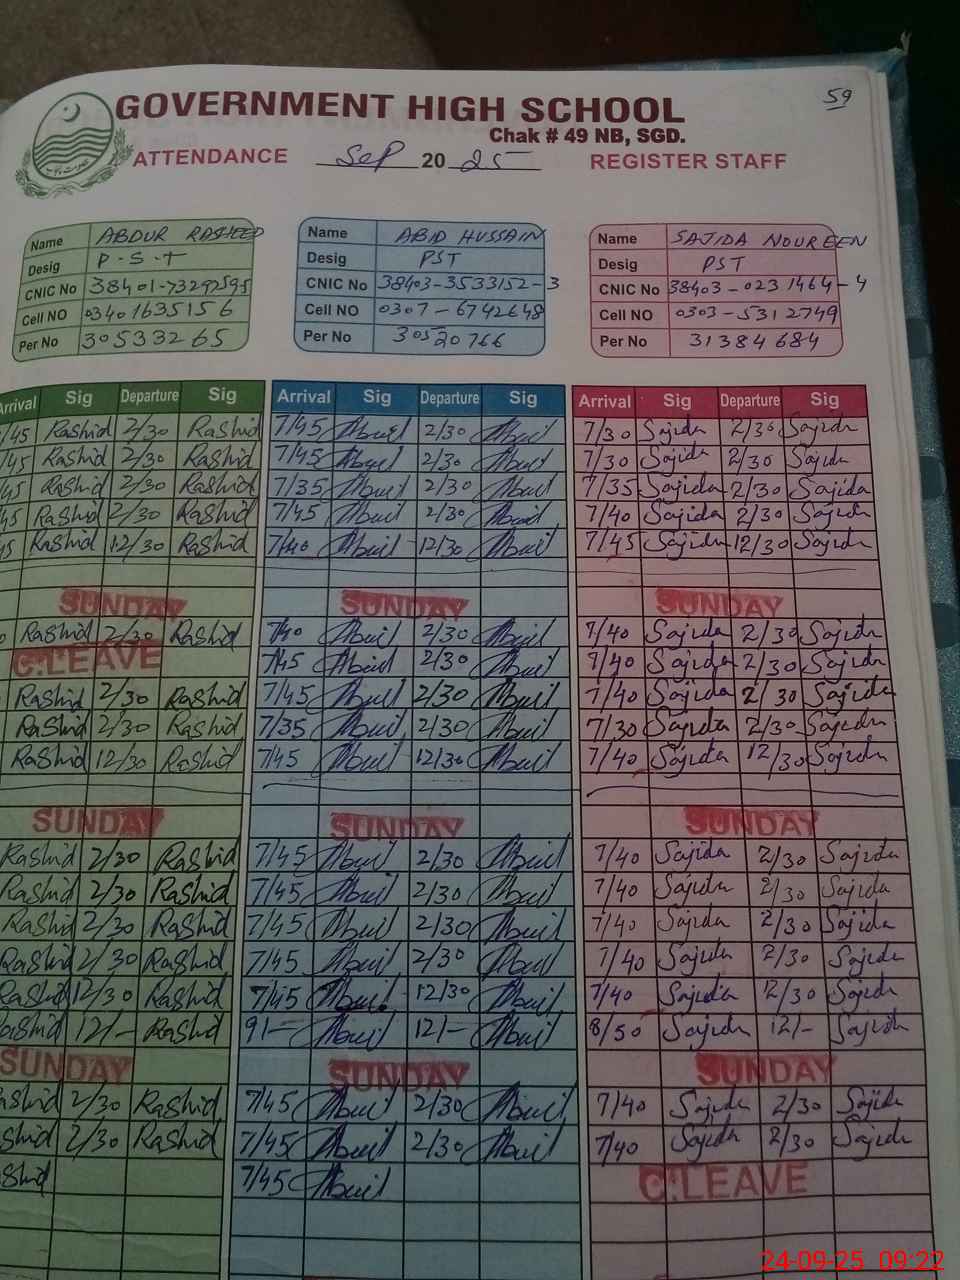 59
GOVERNMENT HIGH SCHOOL
Chak # 49 NB, SGD.
ATTENDANCE Sep 20 25 REGISTER STAFF
Name ABDUR RASHEED Name ABID HUSSAIN Name SAJIDA NOUREEN
Desig P.S.T Desig PST Desig PST
CNIC No 38401-73292595 CNIC No 38403-3533152-3 CNIC No 38403-0231464-4
Cell NO 03401635156 Cell NO 0307-6742648 Cell NO 0303-5312749
Per No 30533265 Per No 30520766 Per No 31384684
Arrival Sig Departure Sig Arrival Sig Departure Sig Arrival Sig Departure Sig
7/45 Rashid 2/30 Rashid 7/45 2/30 7/30 Sajida 2/30 Sajida
/45 Rashid 2/30 Rashid 7/45 2/30 7/30 Sajida 2/30 Sajida
/45 Rashid 2/30 Rashid 7/35 2/30 7/35 Sajida 2/30 Sajida
45 Rashid 2/30 Rashid 7/45 2/30 7/40 Sajida 2/30 Sajida
45 Rashid 12/30 Rashid 7/40 12/30 7/45 Sajida 12/30 Sajida
SUNDAY SUNDAY SUNDAY
Rashid 2/30 Rashid 7/40 2/30 7/40 Sajida 2/30 Sajida
C.LEAVE 7/45 2/30 7/40 Sajida 2/30 Sajida
Rashid 2/30 Rashid 7/45 2/30 7/40 Sajida 2/30 Sajida
Rashid 2/30 Rashid 7/35 2/30 7/30 Sajida 2/30 Sajida
Rashid 12/30 Rashid 7/45 12/30 7/40 Sajida 12/30 Sajida
SUNDAY SUNDAY SUNDAY
Rashid 2/30 Rashid 7/45 2/30 7/40 Sajida 2/30 Sajida
Rashid 2/30 Rashid 7/45 2/30 7/40 Sajida 2/30 Sajida
Rashid 2/30 Rashid 7/45 2/30 7/40 Sajida 2/30 Sajida
Rashid 2/30 Rashid 7/45 2/30 7/40 Sajida 2/30 Sajida
Rashid 12/30 Rashid 7/45 12/30 7/40 Sajida 12/30 Sajida
Rashid 12/- Rashid 9/- 12/- 8/50 Sajida 12/- Sajida
SUNDAY SUNDAY SUNDAY
ashid 2/30 Rashid 7/45 2/30 7/40 Sajida 2/30 Sajida
shid 2/30 Rashid 7/45 2/30 7/40 Sajida 2/30 Sajida
shid 7/45 C.LEAVE
24-09-25 09:22